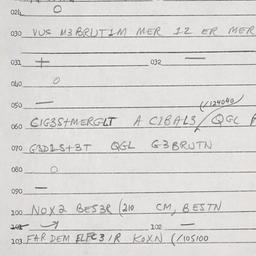 020 O
030 VUS M3BRUT1M MER 12 ER MER
031 + 032 —
040 O
050 —
(/124040)
060 C1G3S+MERGLT A C1BALS / QGL
070 G3D1S+3T QGL G3BRUTN
080 O
090 —
100 NOX2 BES3R (210 CM, BESTN
101 → 102 —
103 FAR DEM ELFC3/R KOXN (/105100